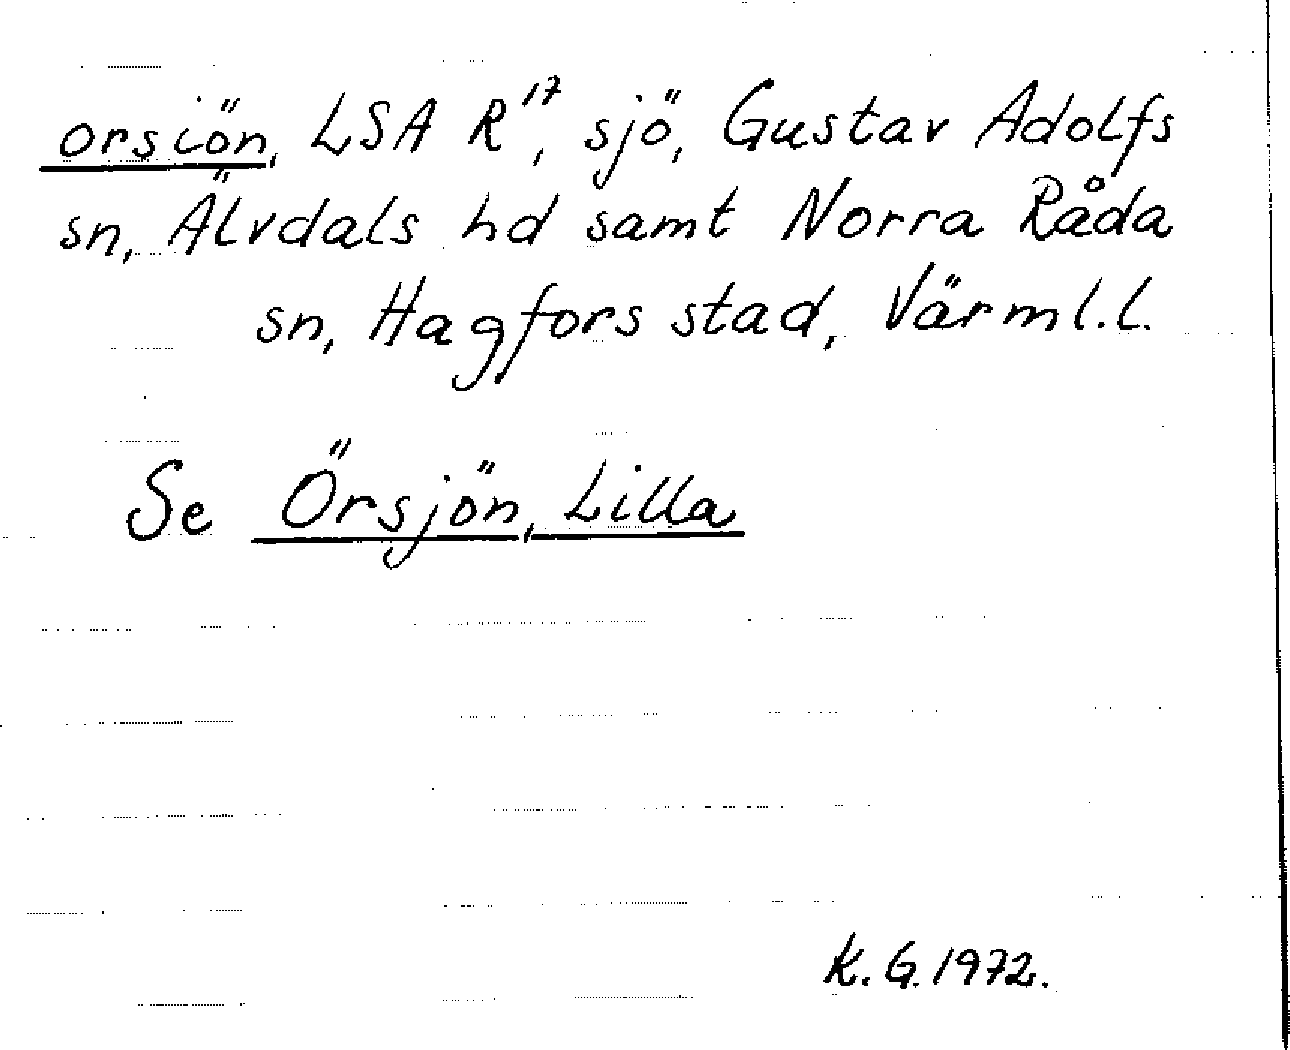 orsiön, LSA R¹⁷, sjö, Gustav Adolfs
sn, Älvdals hd samt Norra Råda
sn, Hagfors stad, Värml. l.
Se Örsjön, Lilla
K. G. 1972.